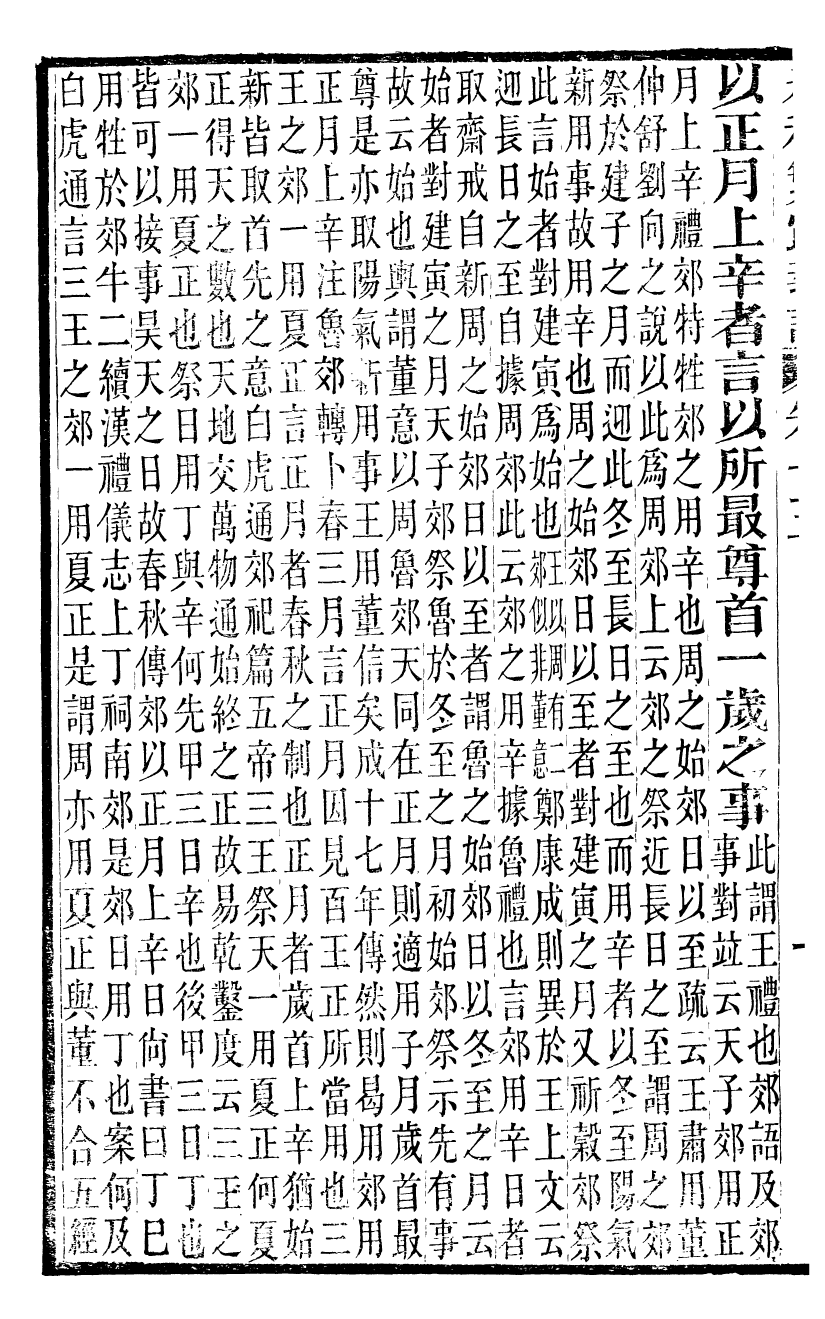 以正月上辛者言以所最尊首一歲之事此謂王禮也郊語及郊
事對竝云天子郊用正
月上辛禮郊特牲郊之用辛也周之始郊日以至疏云王肅用董
仲舒劉向之說以此爲周郊上云郊之祭近長日之至謂周之郊
祭於建子之月而迎此冬至長日之至也而用辛者以冬至陽氣
新用事故用辛也周之始郊日以至者對建寅之月又祈穀郊祭
此言始者對建寅爲始也王以周有二郊似非董意鄭康成則異於王上文云
迎長日之至自據周郊此云郊之用辛據魯禮也言郊用辛日者
取齋戒自新周之始郊日以至者謂魯之始郊日以冬至之月云
始者對建寅之月天子郊祭魯於冬至之月初始郊祭示先有事
故云始也輿謂董意以周魯郊天同在正月則適用子月歲首最
尊是亦取陽氣新用事王用董信矣成十七年傳然則曷用郊用
正月上辛注魯郊轉卜春三月言正月因見百王正所當用也三
王之郊一用夏正言正月者春秋之制也正月者歲首上辛猶始
新皆取首先之意白虎通郊祀篇五帝三王祭天一用夏正何夏
正得天之數也天地交萬物通始終之正故易乾鑿度云三王之
郊一用夏正也祭日用丁與辛何先甲三日辛也後甲三日丁也
皆可以接事昊天之日故春秋傳郊以正月上辛日尙書曰丁巳
用牲於郊牛二續漢禮儀志上丁祠南郊是郊日用丁也案何及
白虎通言三王之郊一用夏正是謂周亦用夏正與董不合五經